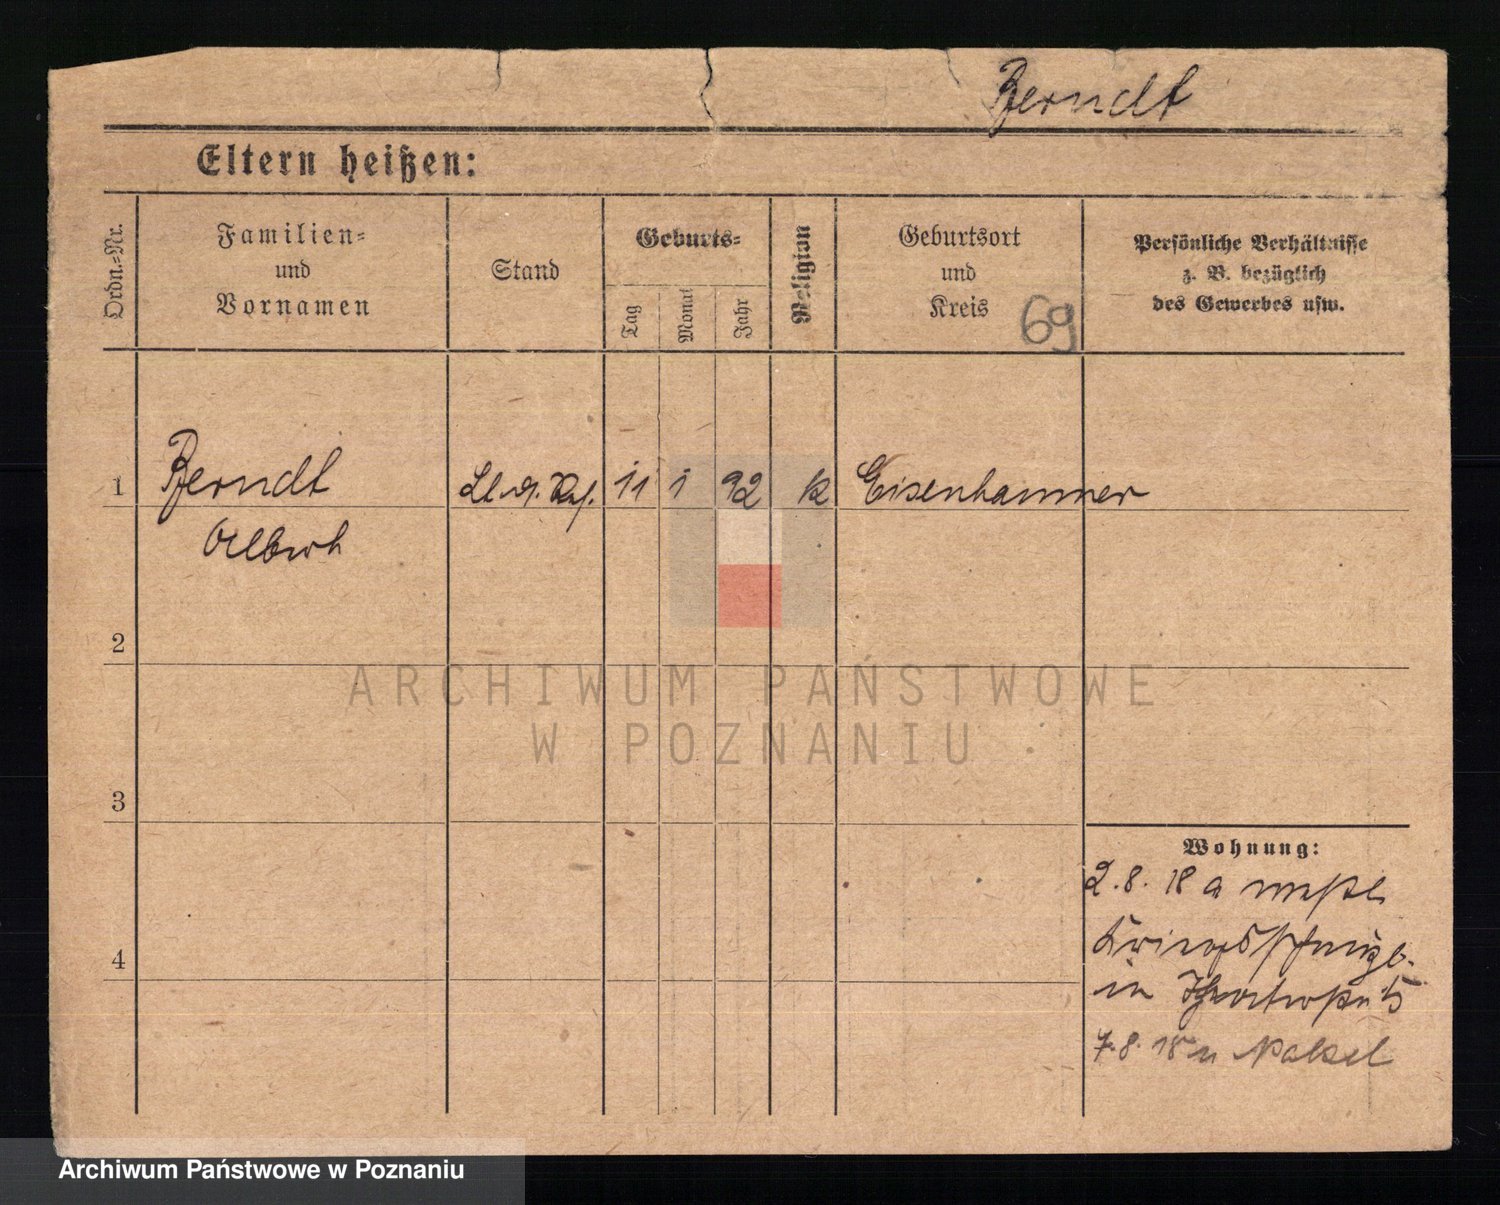 Berndt
Eltern heißen:
Ordn.-Nr.
Familien-
und
Vornamen
Stand
Geburts-
Tag
Monat
Jahr
Religion
Geburtsort
und
Kreis
69
Persönliche Verhältnisse
z. B. bezüglich
des Gewerbes usw.
1
Berndt
11 1 92 k Eisenhammer
2
ARCHIWUM PAŃSTWOWE
W POZNANIU
3
Wohnung:
2.8.18 a
4
in
7.8.18 n Nakel
Archiwum Państwowe w Poznaniu